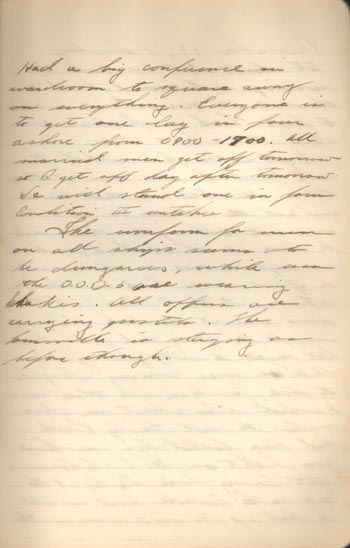 Had a big conference in
wardroom to square away
on everything. Everyone is
to get one day in four
ashore from 0800-1700. All
married men get off tomorrow
so I get off day after tomorrow.
We will stand one in four
Condition watches
The uniform for men
on all ships seems to
be dungarees, while
the O.O.D.s are wearing
khakis. All officers are
carrying pistols. The
is staying as
before though.